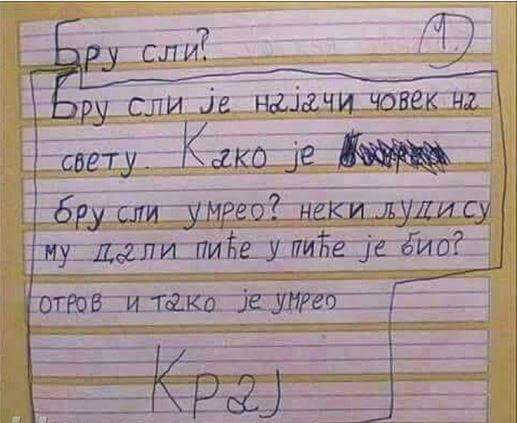 Бру сли?
1.
Бру сли је најачи човек на
свету. Како је
бру сли умрео? неки људи су
му дали пиће у пиће је био?
отров и тако је умрео
Крај